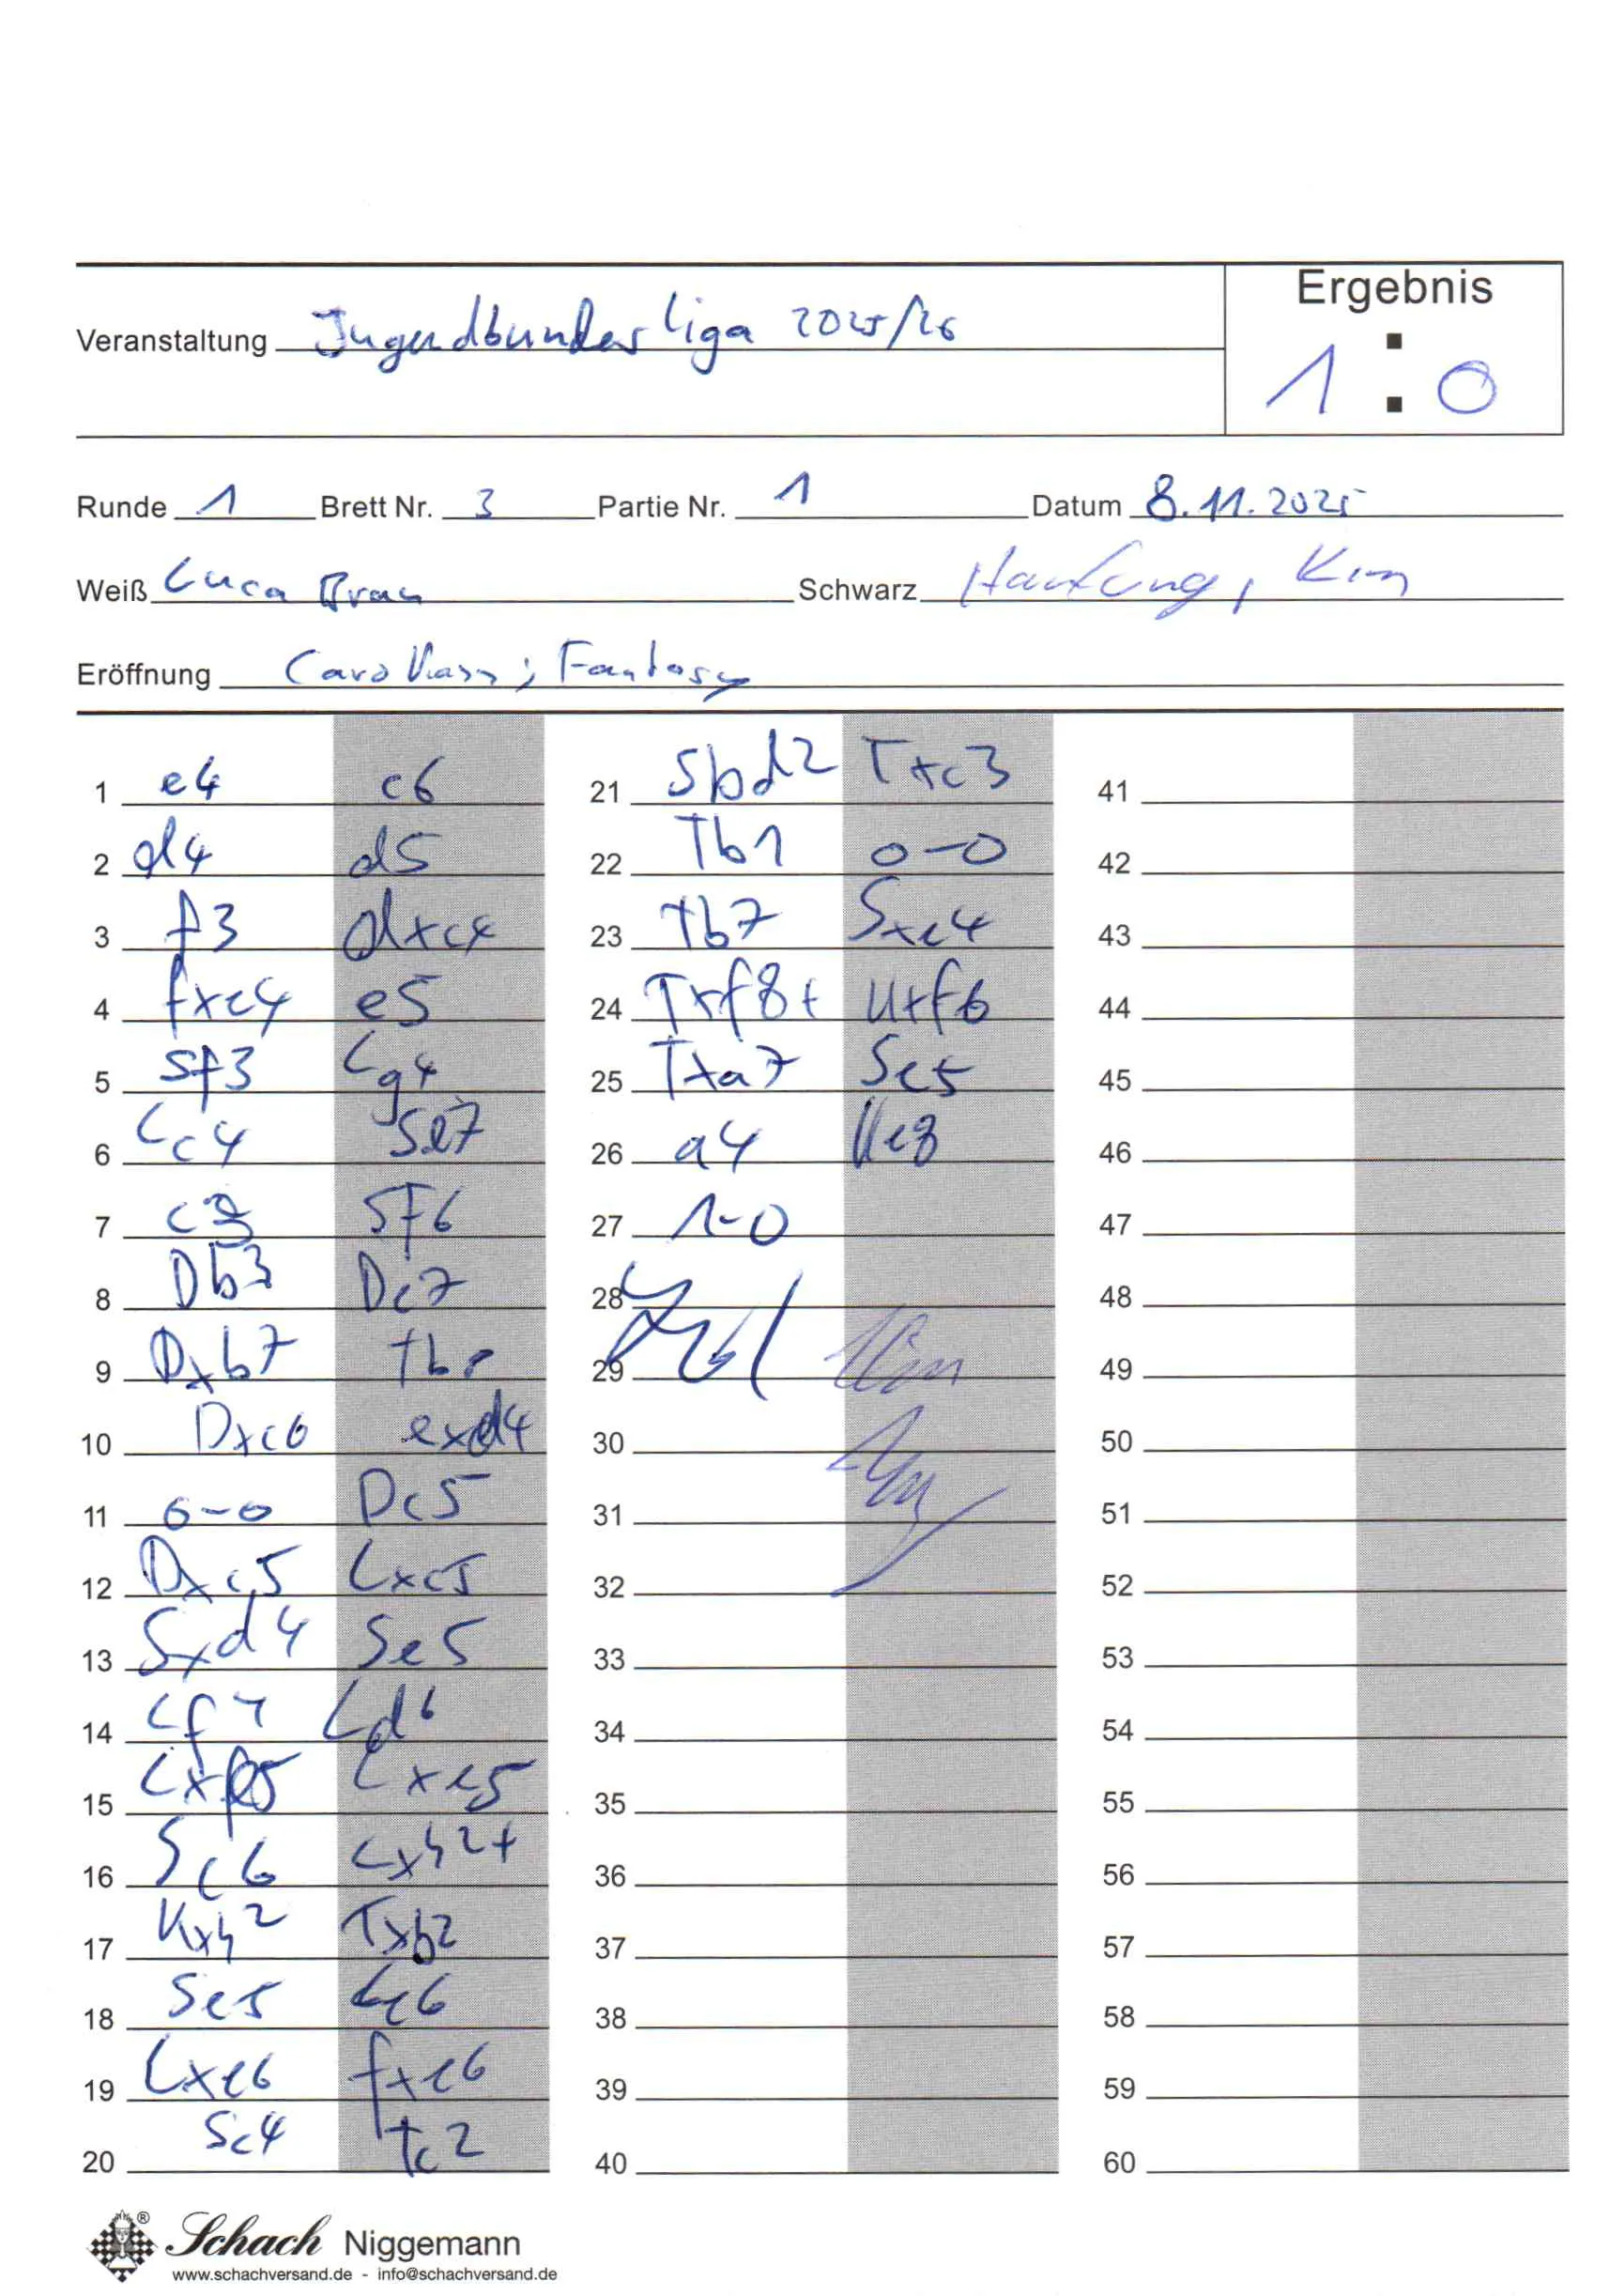 Ergebnis
Veranstaltung Jugendbundesliga 2025/26
1 : 0
Runde 1 Brett Nr. 3 Partie Nr. 1 Datum 8.11.2025
Weiß Luca Schwarz Kim
Eröffnung Caro Kann; Fantasy
1 e4 c6
2 d4 d5
3 f3 dxe4
4 fxe4 e5
5 Sf3 Lg4
6 Lc4 Sd7
7 c3 Sf6
8 Db3 Dc7
9 Dxb7 Tb8
10 Dxc6 exd4
11 0-0 Dc5
12 Dxc5 Lxc5
13 Sxd4 Se5
14 Lf4 Ld6
15 Lxe5 Lxe5
16 Sc6 Lxh2+
17 Kxh2 Txb2
18 Se5 Le6
19 Lxe6 fxe6
20 Sc4 Tc2
21 Sbd2 Txc3
22 Tb1 0-0
23 Tb7 Sxe4
24 Txf8+ Kxf8
25 Txa7 Sc5
26 a4 Ke8
27 1-0
28
29
30
31
32
33
34
35
36
37
38
39
40
41
42
43
44
45
46
47
48
49
50
51
52
53
54
55
56
57
58
59
60
Schach Niggemann
www.schachversand.de - info@schachversand.de